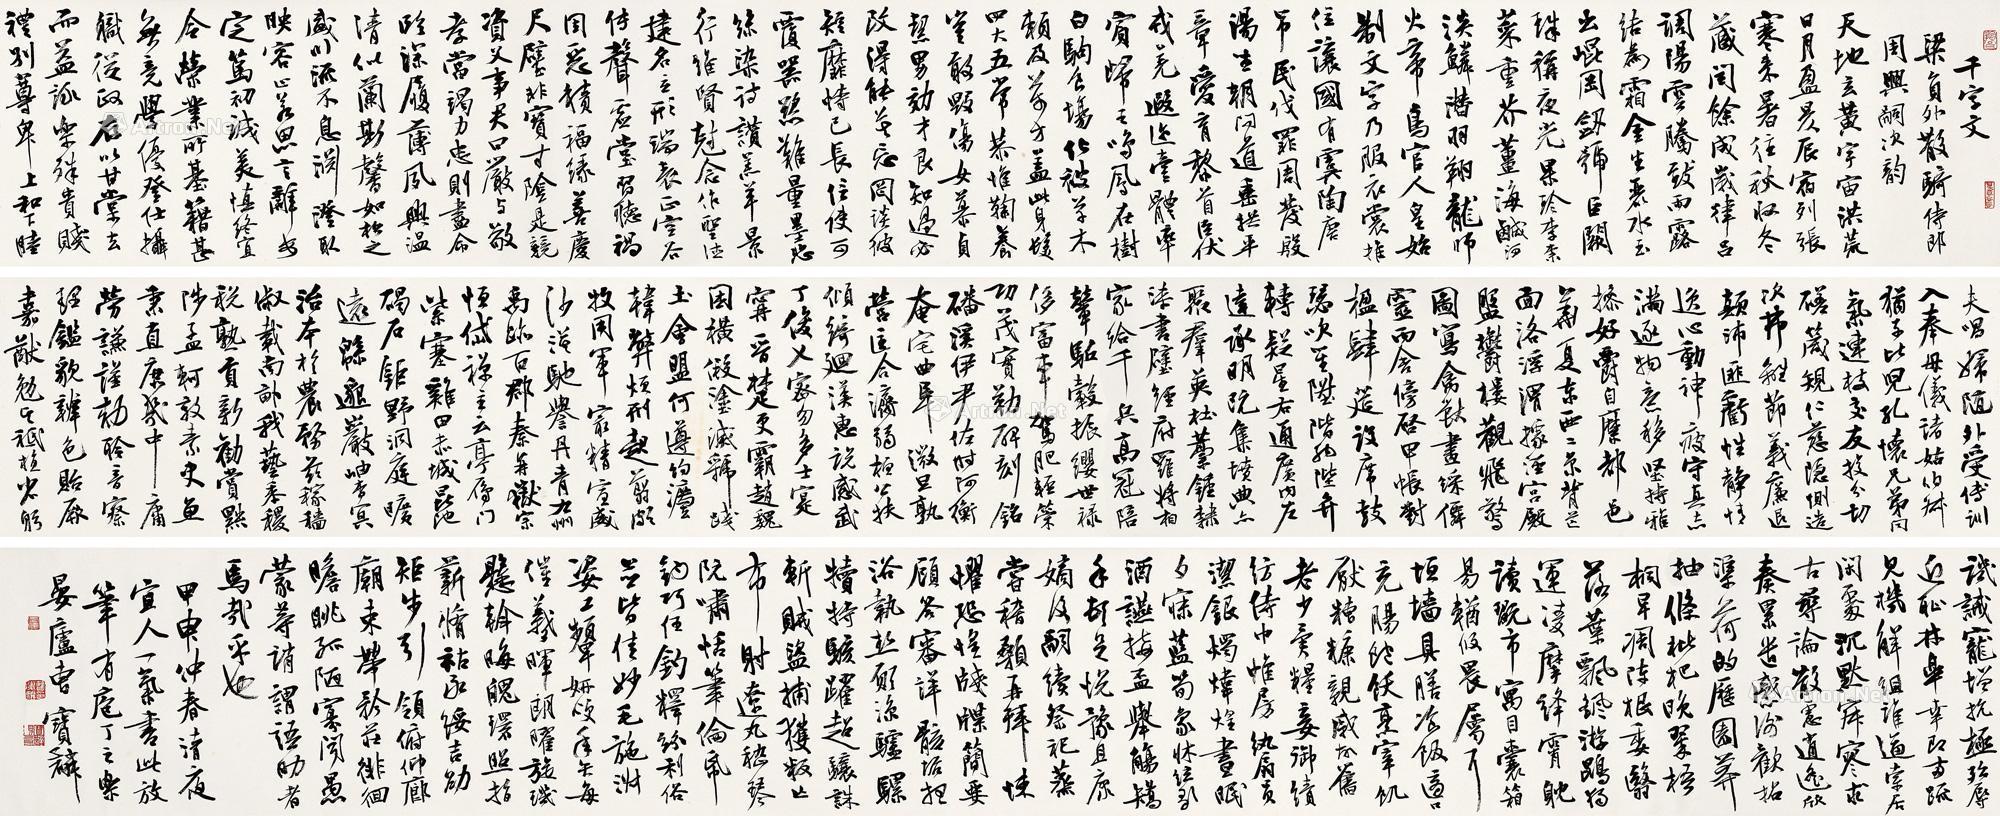 千字文
梁員外散騎侍郎
周興嗣次韵
天地玄黃宇宙洪荒
日月盈昃辰宿列張
寒來暑往秋收冬
藏閏餘成歲律呂
調陽雲騰致雨露
結為霜金生麗水玉
出崐岡劒號巨闕
珠稱夜光果珍李柰
菜重芥薑海鹹河
淡鱗潛羽翔龍師
火帝鳥官人皇始
制文字乃服衣裳推
位讓國有虞陶唐
弔民伐罪周發殷
湯坐朝問道垂拱平
章愛育黎首臣伏
戎羌遐邇壹體率
賓歸王鳴鳳在樹
白駒食場化被草木
賴及萬方蓋此身髮
四大五常恭惟鞠養
豈敢毀傷女慕貞
絜男効才良知過必
改得能莫忘罔談彼
短靡恃己長信使可
覆器欲難量墨悲
絲染詩讚羔羊景
行維賢剋念作聖德
建名立形端表正空谷
傳聲虛堂習聽禍
因惡積福緣善慶
尺璧非寶寸陰是競
資父事君曰嚴與敬
孝當竭力忠則盡命
臨深履薄夙興溫
清似蘭斯馨如松之
盛川流不息淵澄取
映容止若思言辭安
定篤初誠美慎終宜
令榮業所基籍甚
無竟學優登仕攝
職從政存以甘棠去
而益詠樂殊貴賤
禮別尊卑上和下睦
夫唱婦隨外受傅訓
入奉母儀諸姑伯叔
猶子比兒孔懷兄弟同
氣連枝交友投分切
磨箴規仁慈隱惻造
次弗離節義廉退
顛沛匪虧性靜情
逸心動神疲守真志
滿逐物意移堅持雅
操好爵自縻都邑
華夏東西二京背芒
面洛浮渭據涇宮殿
盤鬱樓觀飛驚
圖寫禽獸畫綵僊
靈丙舍傍啓甲帳對
楹肆筵設席鼓
瑟吹笙陞階納陛弁
轉疑星右通廣內左
達承明既集墳典亦
聚群英杜藁鍾隸
漆書壁經府羅將相
家給千兵高冠陪
輦驅轂振纓世祿
侈富車駕肥輕策
功茂實勒碑刻銘
磻溪伊尹佐時阿衡
奄宅曲阜微旦孰
營匡合濟弱桓公扶
傾綺迴漢惠說感武
丁俊乂密勿多士寔
寧晉楚更霸趙魏
困橫假途滅虢踐
土會盟何遵約法
韓弊煩刑起翦頗
牧用軍最精宣威
沙漠馳譽丹青九州
禹跡百郡秦并嶽宗
恒岱禪主云亭雁門
紫塞雞田赤城昆池
碣石鉅野洞庭曠
遠緜邈巖岫杳冥
治本於農務茲稼穡
俶載南畝我藝黍稷
稅熟貢新勸賞黜
陟孟軻敦素史魚
秉直庶幾中庸
勞謙謹勑聆音察
理鑑貌辨色貽厥
嘉猷勉其祗植省躬
譏誡寵增抗極殆辱
近恥林皋幸即兩疏
見機解組誰逼索居
閑處沉默寂寥求
古尋論散慮逍遙欣
奏累遣慼謝歡招
渠荷的歷園莽
抽條枇杷晚翠梧
桐早凋陳根委翳
落葉飄颻游鵾獨
運凌摩絳霄耽
讀翫市寓目囊箱
易輶攸畏屬耳
垣墻具膳飡飯適口
充腸飽飫烹宰飢
厭糟糠親戚故舊
老少異糧妾御績
紡侍巾帷房紈扇員
潔銀燭煒煌晝眠
夕寐藍筍象床絃歌
酒讌接杯舉觴矯
手頓足悅豫且康
嫡後嗣續祭祀蒸
嘗稽顙再拜悚
懼恐惶牋牒簡要
顧答審詳骸垢想
浴執熱願涼驢騾
犢特駭躍超驤誅
斬賊盜捕獲叛亡
布射遼丸嵇琴
阮嘯恬筆倫紙
鈞巧任釣釋紛利俗
並皆佳妙毛施淑
姿工顰妍咲年矢每
催羲暉朗曜旋璣
懸斡晦魄環照指
薪脩祜永綏吉劭
矩步引領俯仰廊
廟束帶矜莊徘徊
瞻眺孤陋寡聞愚
蒙等誚謂語助者
焉哉乎也
甲申仲春清夜
宜人一氣書此放
筆有庖丁之樂
晏廬曹寶麟